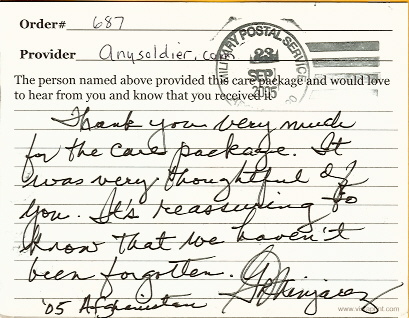 Order# 687
Provider anysoldier.com
MILITARY POSTAL SERVICE
23
SEP
2005
The person named above provided this care package and would love
to hear from you and know that you received it.
Thank you very much
for the care package. It
was very thoughtful of
you. It's reassuring to
know that we haven't
been forgotten.
'05 Afghanistan